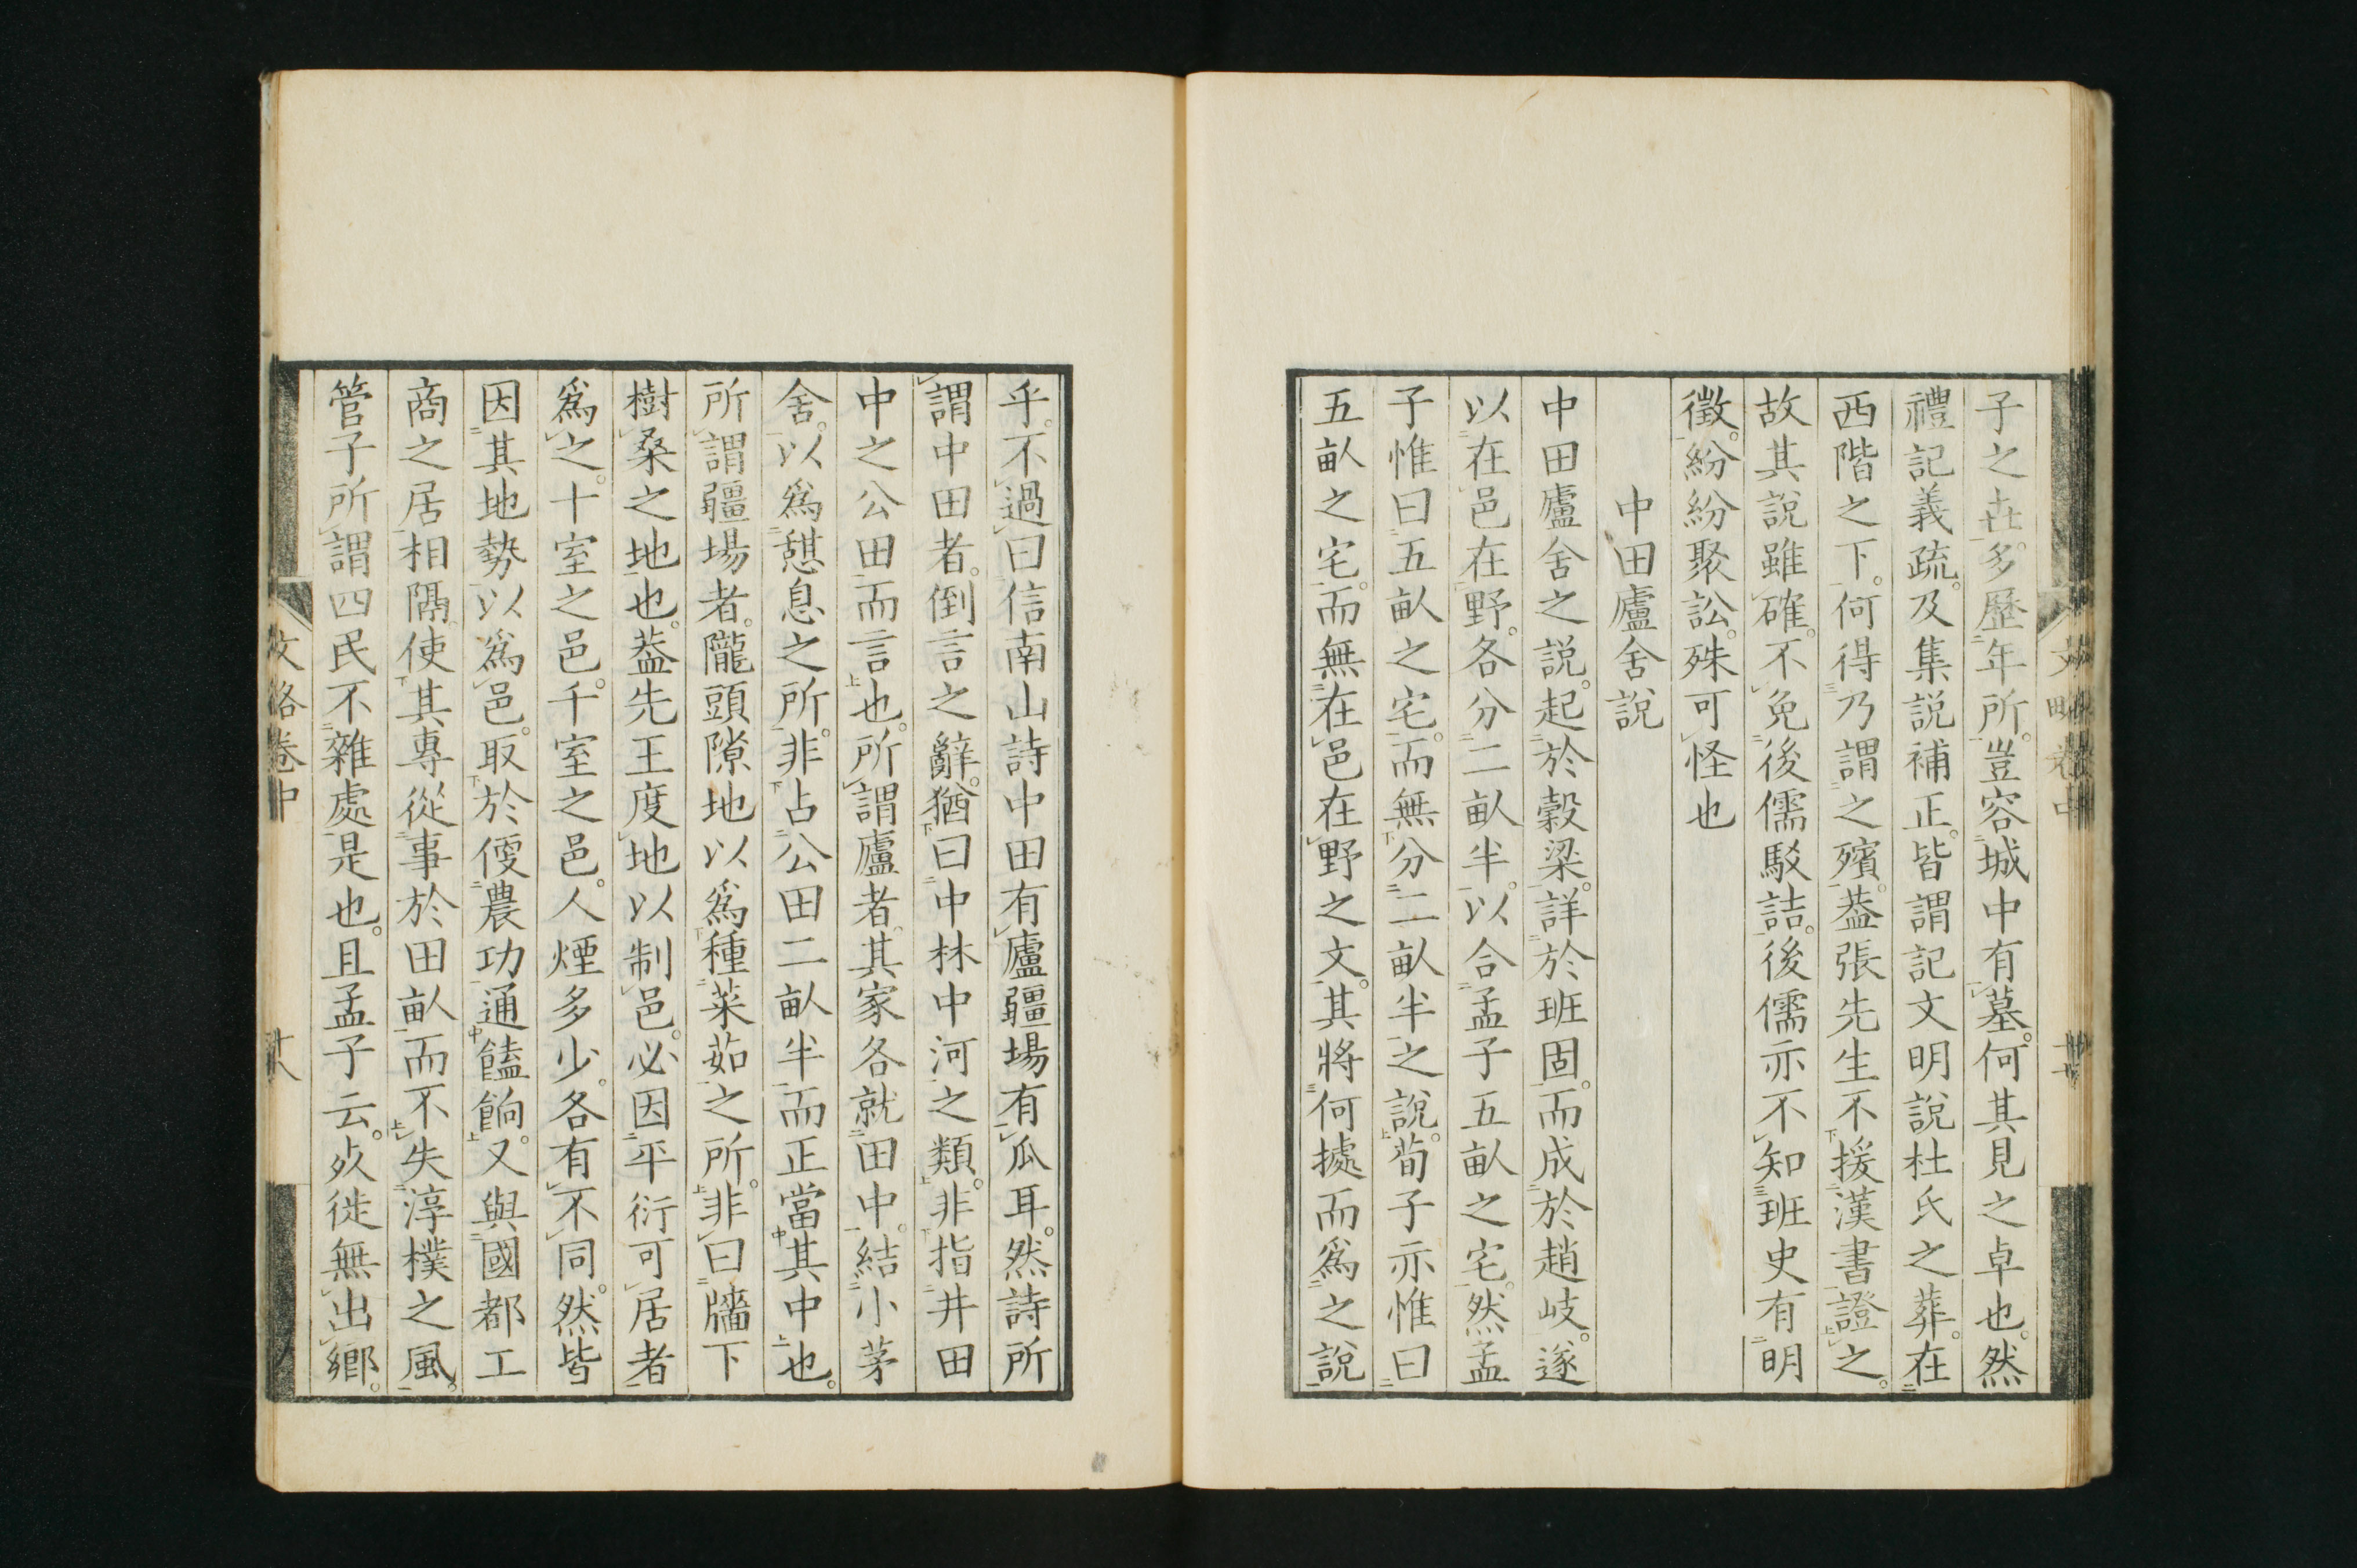 子之𠀍多歷年所。豈容城中有墓。何其見之卓也。然
禮記義疏。及集説補正。皆謂記文明說杜氏之葬。在
西階之下。何得乃謂之殯。葢張先生不援漢書證之。
故其説雖確。不免後儒駁詰。後儒亦不知班史有明
徵。紛紛聚訟。殊可怪也
中田廬舍說
中田廬舍之説。起於穀梁。詳於班固。而成於趙岐。遂
以在邑在野。各分二畝半。以合孟子五畝之宅。然孟
子惟曰五畝之宅。而無分二畝半之說。荀子亦惟曰
五畝之宅。而無在邑在野之文。其將何據而爲之說
乎。不過曰信南山詩中田有廬疆場有瓜耳。然詩所
謂中田者。倒言之辭。猶曰中林中河之類。非指井田
中之公田而言也。所謂廬者。其家各就田中。結小茅
舍。以爲憇息之所。非占公田二畝半而正當其中也。
所謂疆場者。隴頭隙地以爲種菜茹之所。非曰牆下
樹桑之地也。葢先王度地以制邑。必因平衍可居者
爲之。十室之邑。千室之邑。人煙多少。各有不同。然皆
因其地勢以爲邑。取於便農功通饁餉。又與國都工
商之居相隔。使其專從事於田畝而不失淳樸之風。
管子所謂四民不雜處是也。且孟子云。死徙無出鄉。
文略卷中
十八